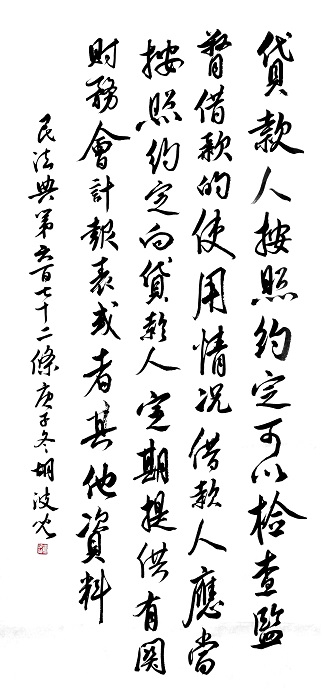 貸款人按照约定可以检查監
督借款的使用情况借款人應當
按照约定向貸款人定期提供有関
財務會計報表或者其他資料
民法典第六百七十二條庚子冬胡波